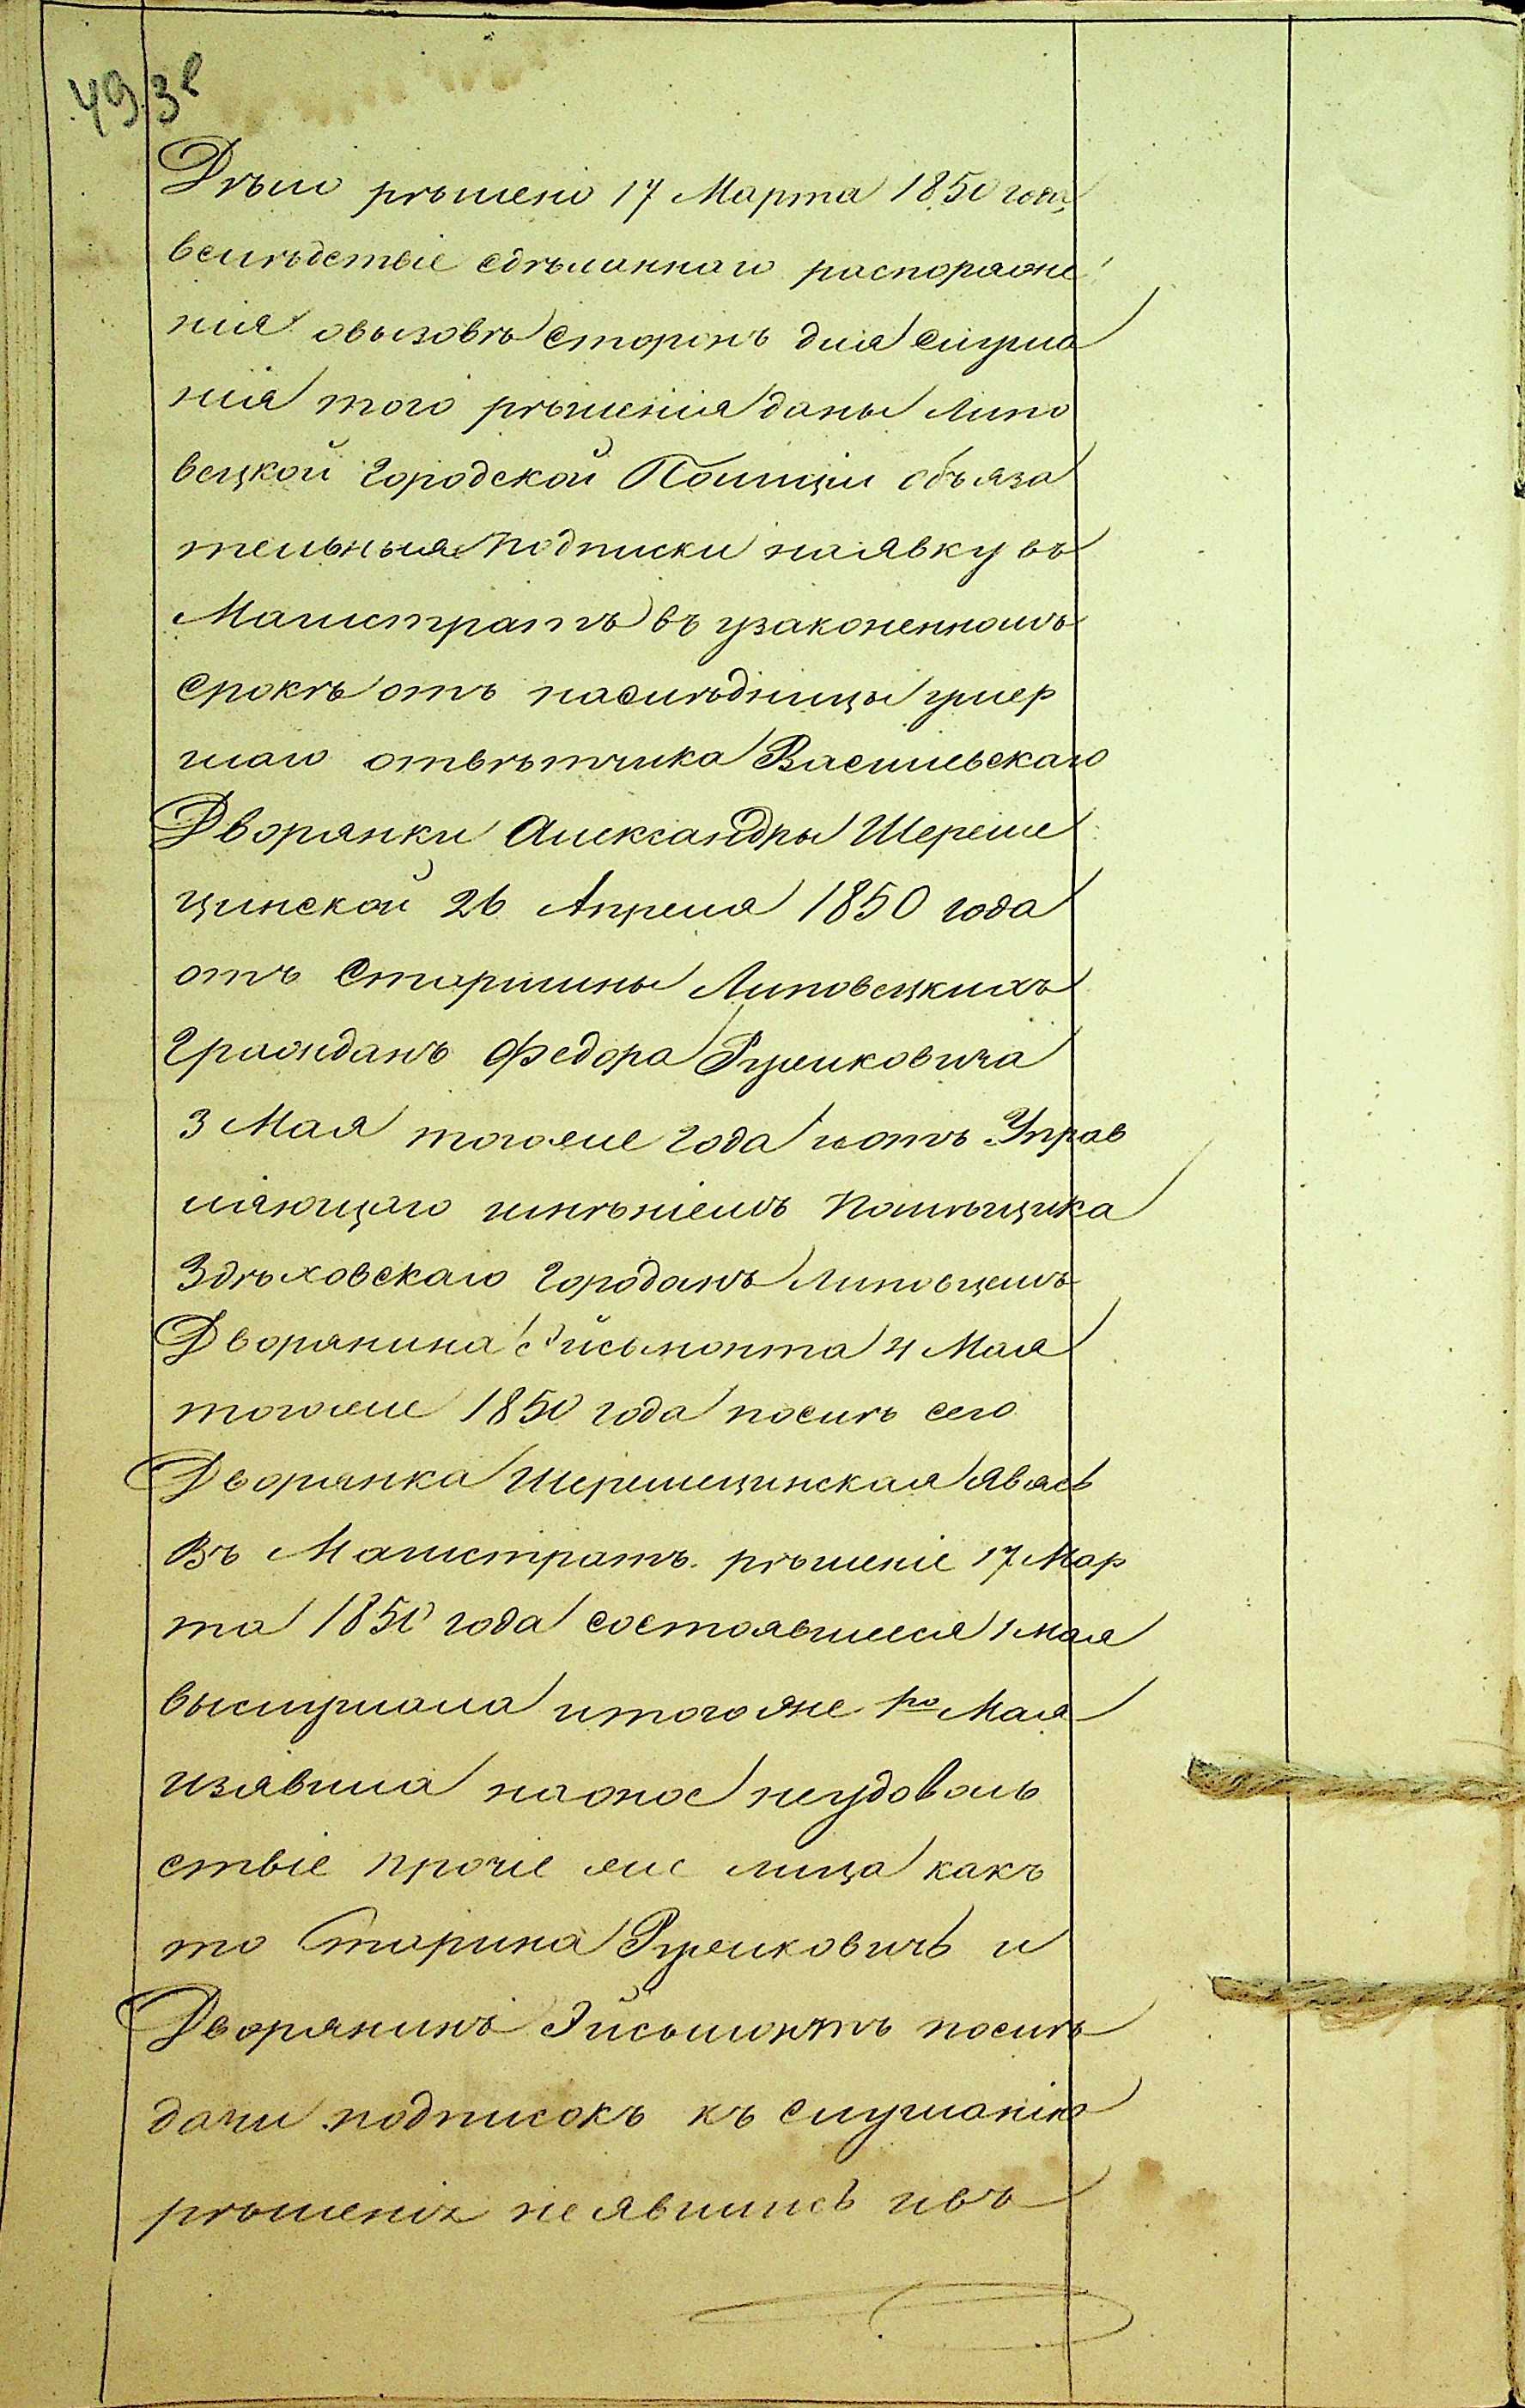 493
Дѣло рѣшено 17 Марта 1850 года,
вслѣдствіе сдѣланнаго распоряже
нія овызовѣ сторонъ для слуша
нія того рѣшенія даны Липо
вецкой Городской Полиціи объяза
тельныя подписки наявку въ
Магистратъ въ узаконенномъ
срокѣ отъ наслѣдницы умер
шаго отвѣтчика Васильевскаго
Дворянки Александры Шереше
цинской 26 Апреля 1850 года
отъ Старшины Липовецкихъ
Гражданъ Федора
3 Мая тогоже года иотъ Управ
ляющаго имѣніемъ Помѣщика
Здѣховскаго Городомъ Липовцемъ
Дворянина Эйсымонта 4 Мая
тогоже 1850 года послѣ сего
Дворянка Шерешецинская Явясь
Въ Магистратъ рѣшеніе 17 Мар
та 1850 года состоявшееся 1 мая
выслушала итогоже 1го Мая
изявила наоное неудоволь
ствіе прочіе же лица какъ
то Старшина и
Дворянинъ Эйсымонтъ послѣ
дачи подписокъ къ слушанію
рѣшенія неявились ивъ